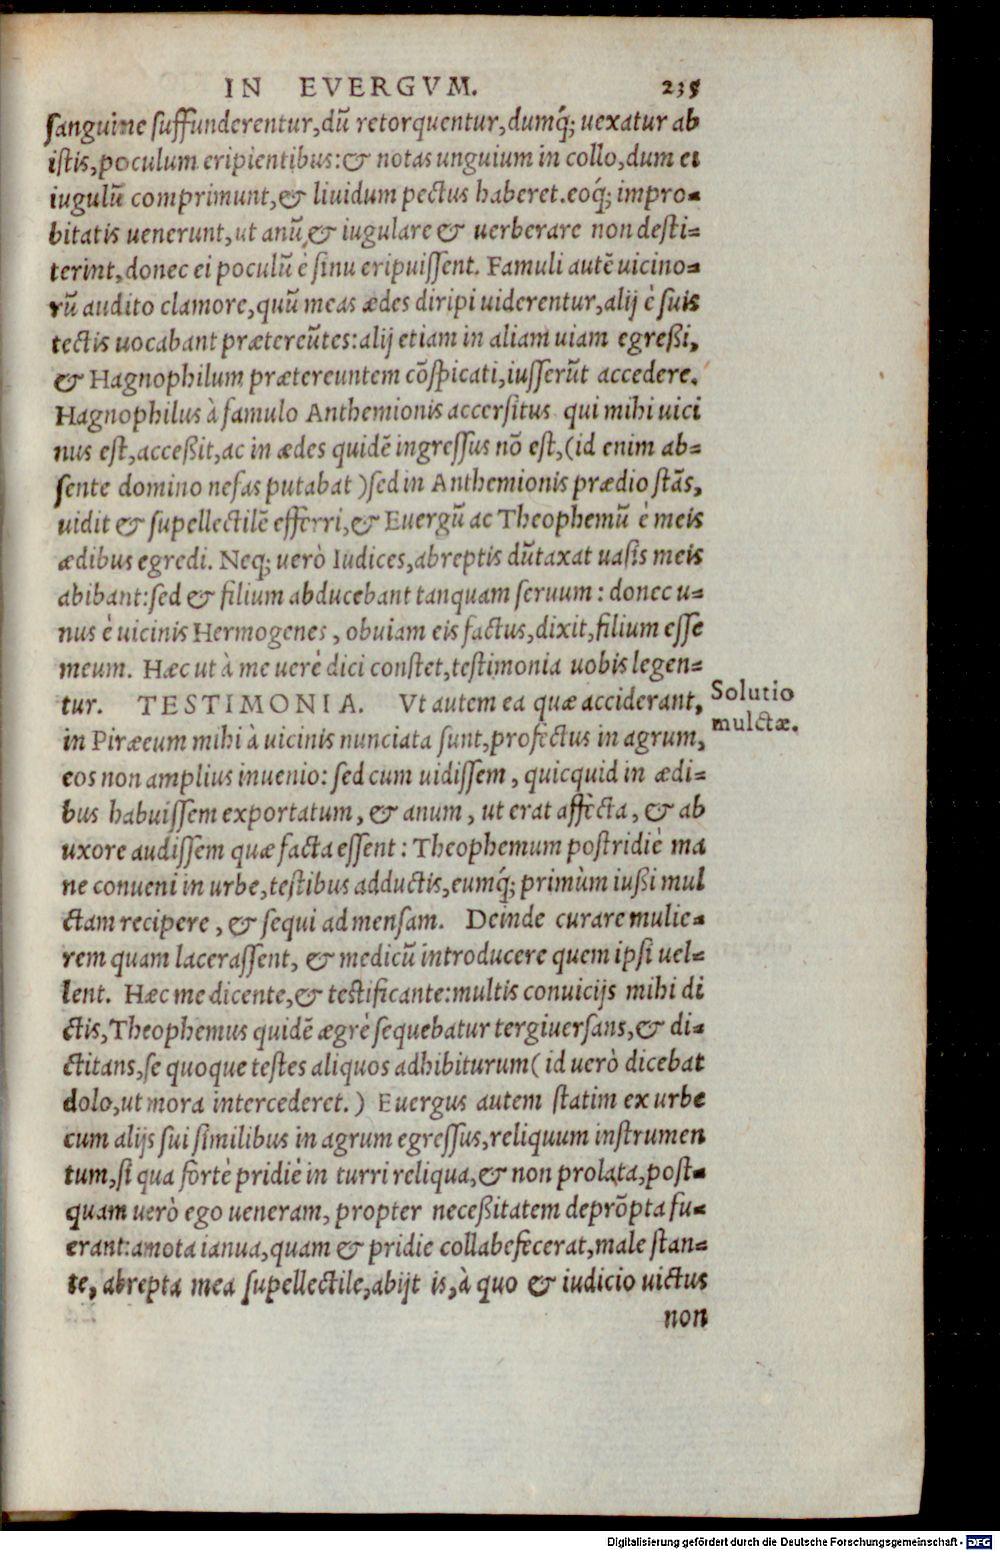 IN EVERGVM. 235
sanguine suffunderentur,dū retorquentur,dumq́; uexatur ab
istis,poculum eripientibus:& notas unguium in collo,dum ei
iugulū comprimunt,& liuidum pectus haberet.eoq́; impro-
bitatis uenerunt,ut anū & iugulare & uerberare non desti-
terint,donec ei poculū è sinu eripuissent. Famuli autē uicino-
rū audito clamore,quū meas ædes diripi uiderentur,alij è suis
tectis uocabant prætereūtes:alij etiam in aliam uiam egreßi,
& Hagnophilum prætereuntem cōspicati,iusserūt accedere.
Hagnophilus à famulo Anthemionis accersitus qui mihi uici
nus est,acceßit,ac in ædes quidē ingressus nō est,(id enim ab-
sente domino nefas putabat)sed in Anthemionis prædio stās,
uidit & supellectilē efferri,& Euergū ac Theophemū è meis
ædibus egredi. Neq; uerò Iudices,abreptis dūtaxat uasis meis
abibant:sed & filium abducebant tanquam seruum: donec u-
nus è uicinis Hermogenes, obuiam eis factus,dixit,filium esse
meum. Hæc ut à me uerè dici constet,testimonia uobis legen-
tur. TESTIMONIA. Vt autem ea quæ acciderant,
Solutio
mulctæ.
in Piræeum mihi à uicinis nunciata sunt,profectus in agrum,
eos non amplius inuenio: sed cum uidissem, quicquid in ædi-
bus habuissem exportatum, & anum, ut erat affecta, & ab
uxore audissem quæ facta essent: Theophemum postridiè ma
ne conueni in urbe,testibus adductis,eumq́; primùm iußi mul
ctam recipere, & sequi ad mensam. Deinde curare mulie-
rem quam lacerassent, & medicū introducere quem ipsi uel-
lent. Hæc me dicente,& testificante:multis conuicijs mihi di
ctis,Theophemus quidē ægrè sequebatur tergiuersans,& di-
ctitans,se quoque testes aliquos adhibiturum(id uerò dicebat
dolo,ut mora intercederet.) Euergus autem statim ex urbe
cum alijs sui similibus in agrum egressus,reliquum instrumen
tum,si qua fortè pridiè in turri reliqua,& non prolata,post-
quam uerò ego ueneram, propter neceßitatem deprōpta fu-
erant:amota ianua,quam & pridie collabefecerat,male stan-
te, abrepta mea supellectile,abijt is,à quo & iudicio uictus
non
Digitalisierung gefördert durch die Deutsche Forschungsgemeinschaft - DFG